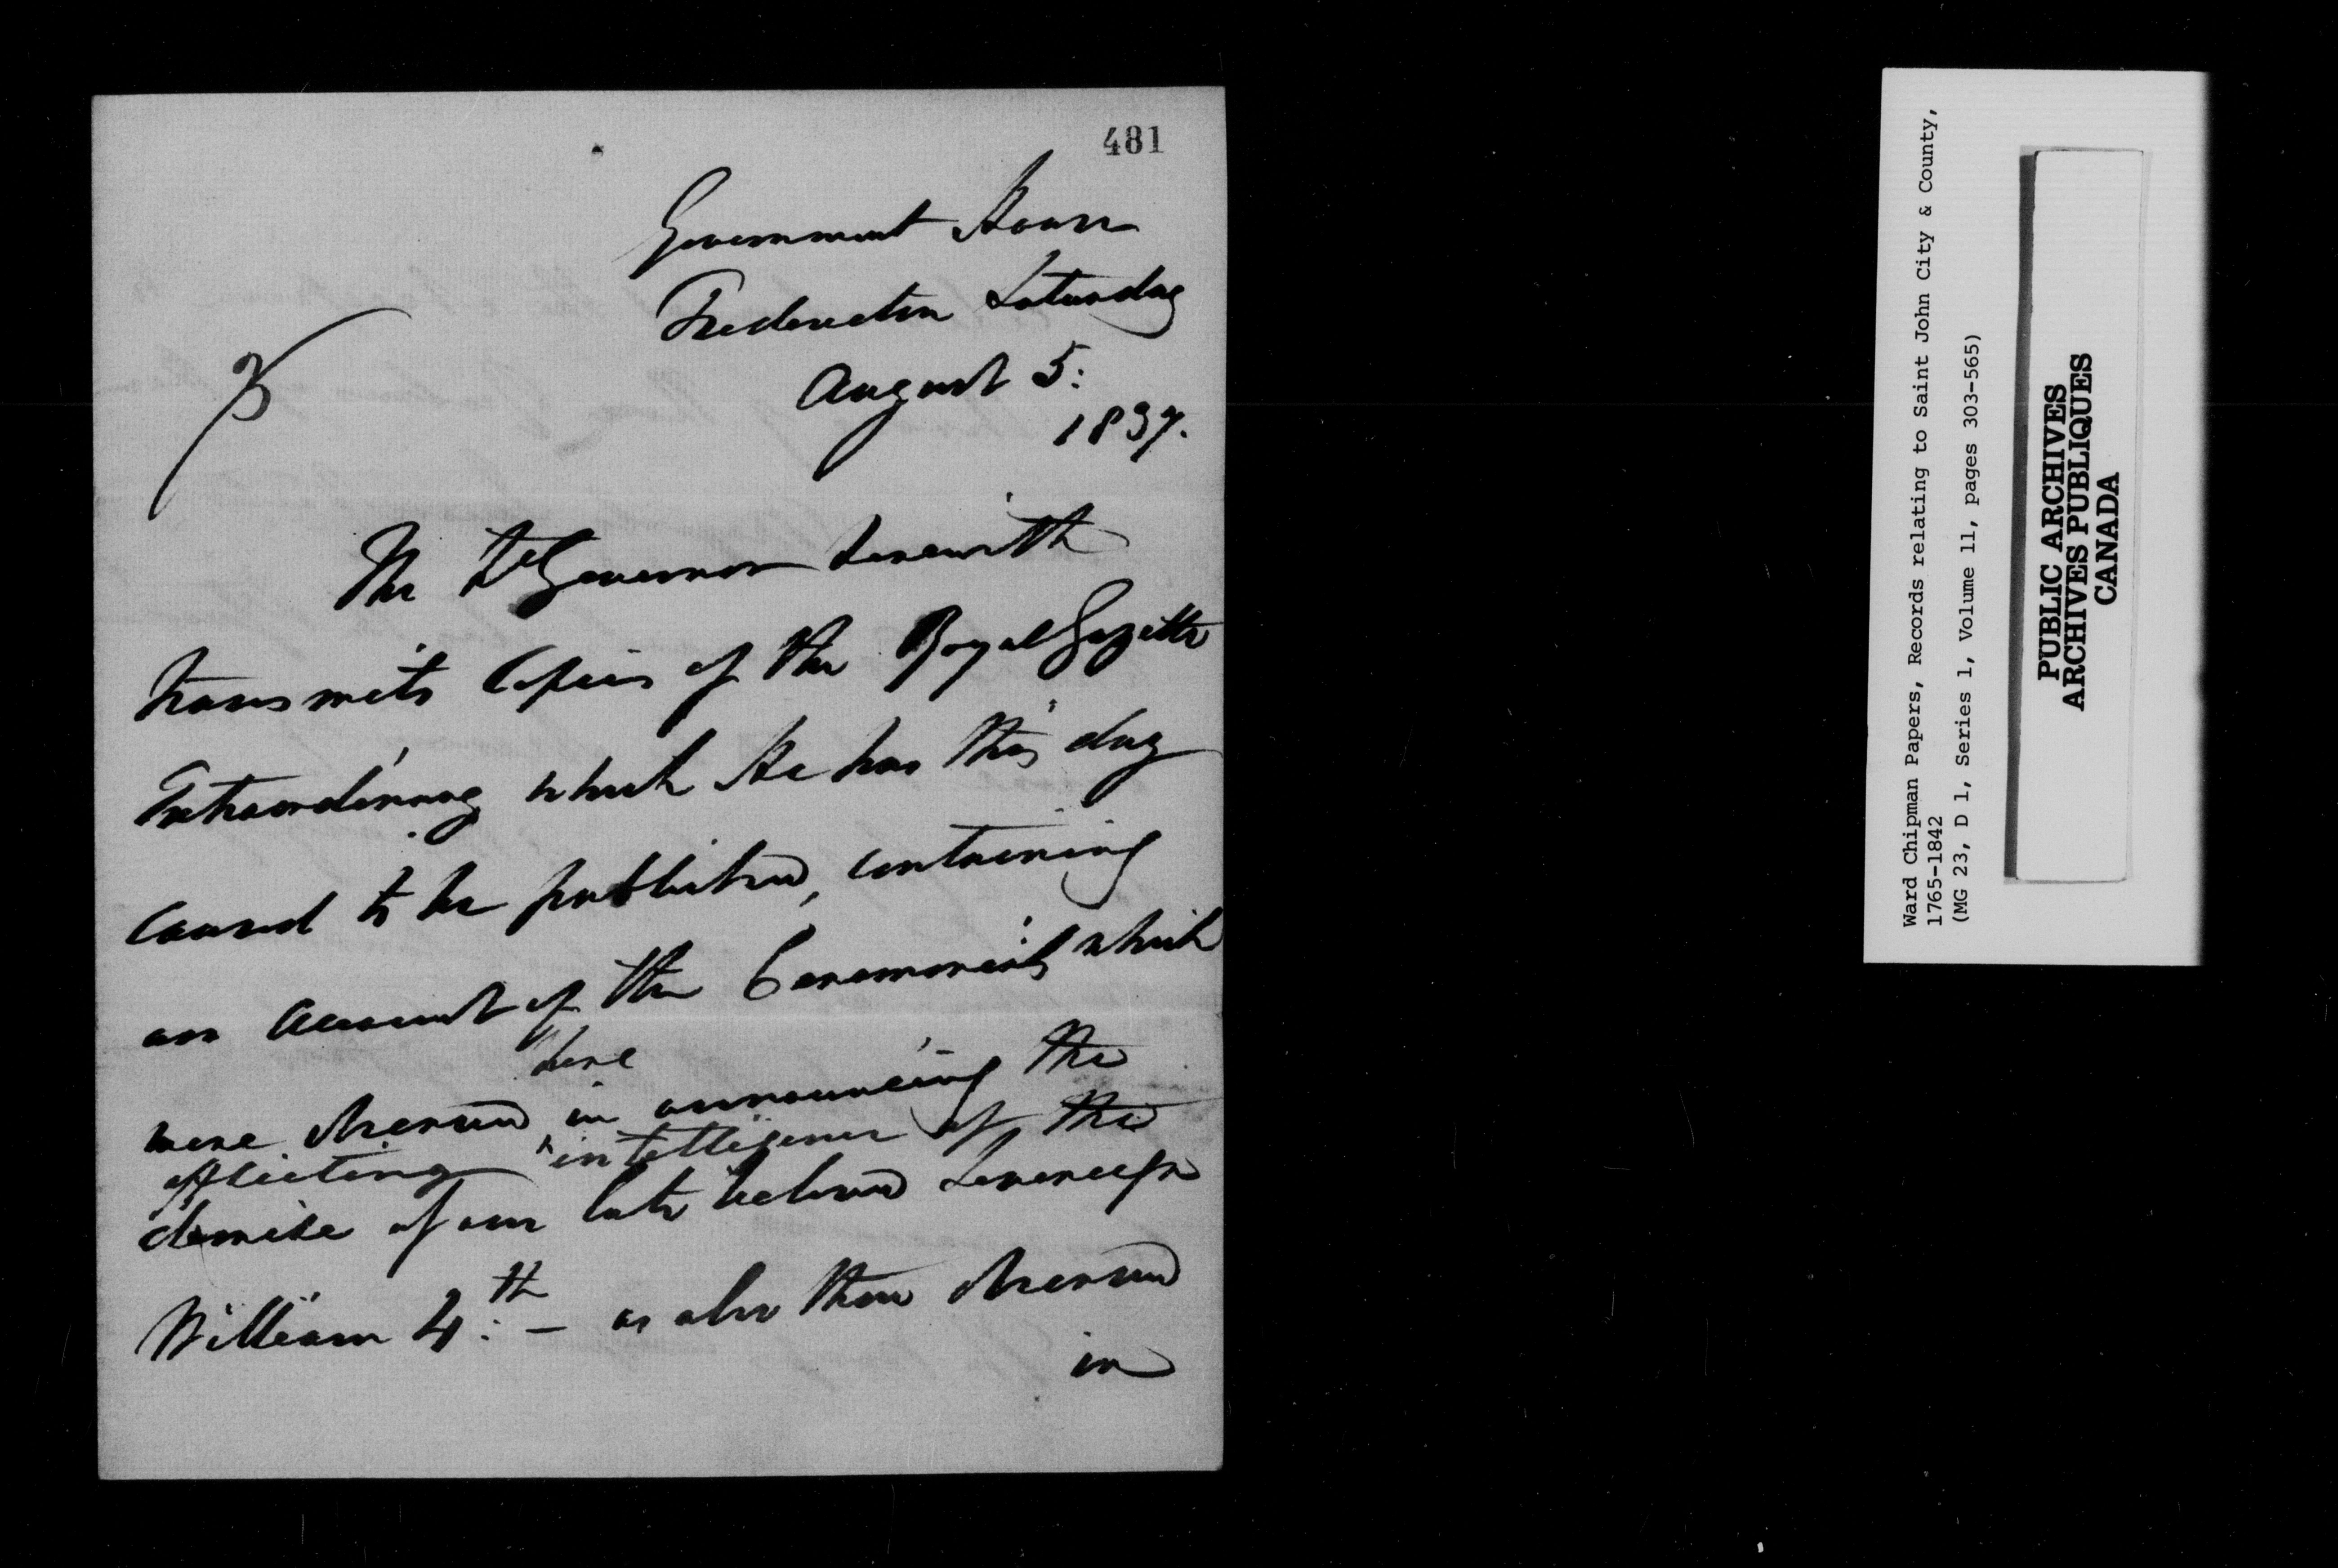 481
Government House
Fredericton Saturday
August 5:
1837.
The Lt Governor herewith
transmits Copies of the Royal Gazette
Extraordinary which He has this day
caused to be published, containing
an account of the Ceremonials which
here
were observed in announcing the
afflicting intelligence of the
demise of our late beloved Sovereign
William 4:th – as also those observed
in
Ward Chipman Papers, Records relating to Saint John City & County,
1765-1842
(MG 23, D 1, Series 1, Volume 11, pages 303-565)
PUBLIC ARCHIVES
ARCHIVES PUBLIQUES
CANADA